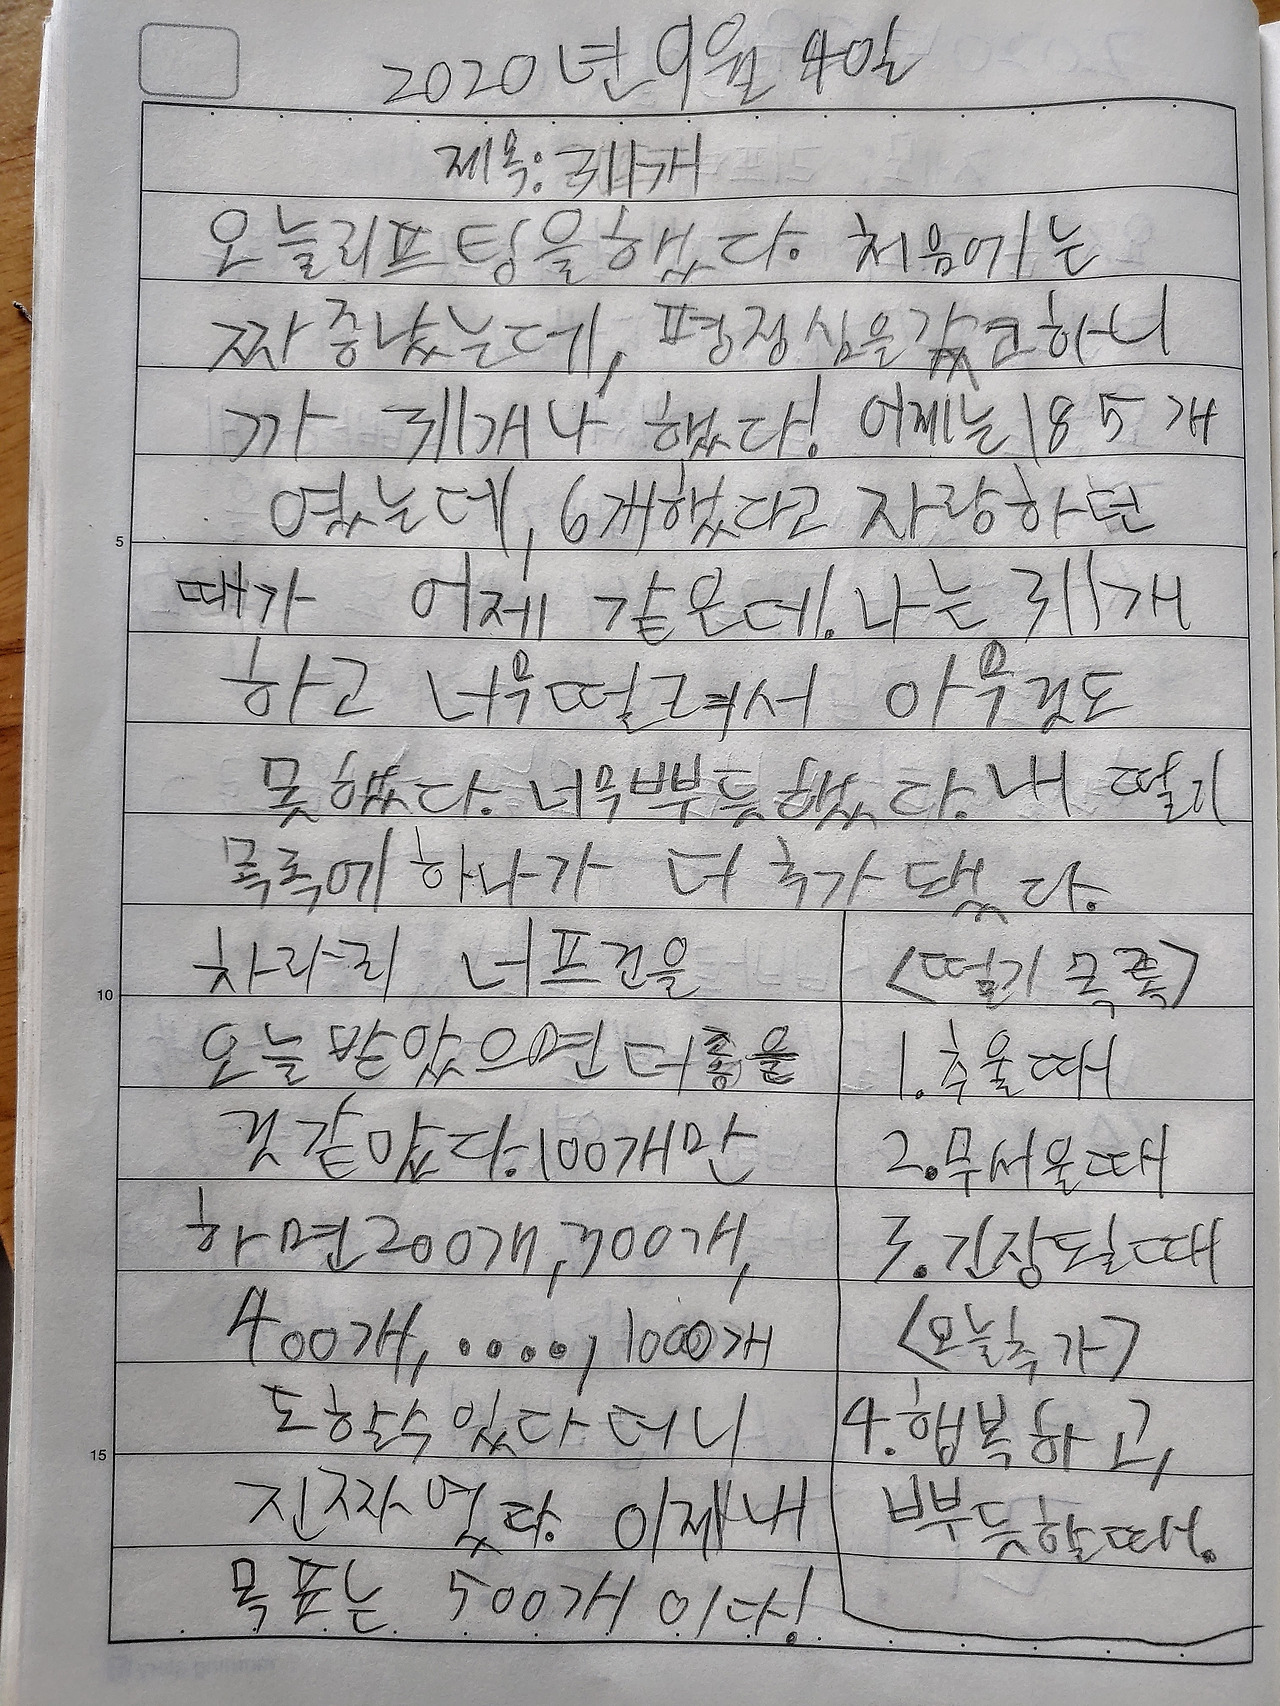 2020년 9월 4일
제목: 311개
오늘리프팅을했다. 처음에는
짜증났는데, 평정심을갖고하니
까 311개나 했다! 어제는185개
였는데, 6개했다고 자랑하던
때가 어제 같은데. 나는 311개
하고 너무떨려서 아무것도
못했다. 너무뿌듯했다. 내 떨기
목록에 하나가 더 추가 됐다.
차라리 너프건을
오늘받았으면 더좋을
것같았다.100개만
하면200개,300개,
400개,....,1000개
도할수있다더니
진짜였다. 이제내
목표는 500개이다!
<떨기 목록>
1.추울때
2.무서울때
3.긴장될때
<오늘추가>
4.행복하고,
뿌듯할때.